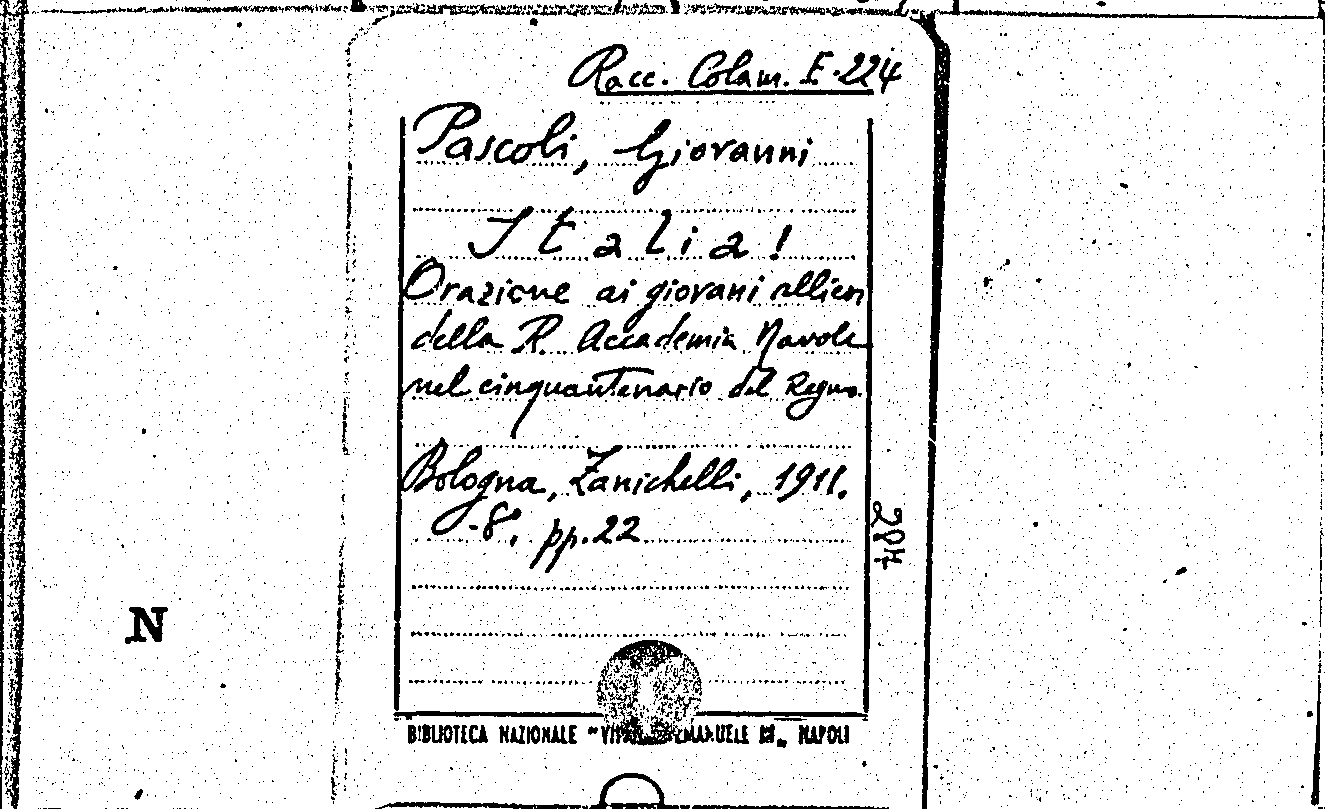 Racc. Colam. E. 224
Pascoli, Giovanni
Italia!
Orazione ai giovani allievi
della R. Accademia Navale
nel cinquantenario del Regno.
Bologna, Zanichelli, 1911.
-8°. pp. 22
N
BIBLIOTECA NAZIONALE "VITT. EMANUELE III„ NAPOLI